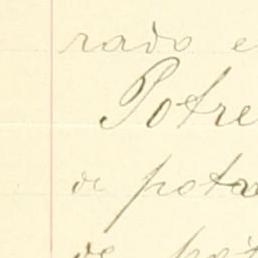 rado e
Potre
de pota
de pot